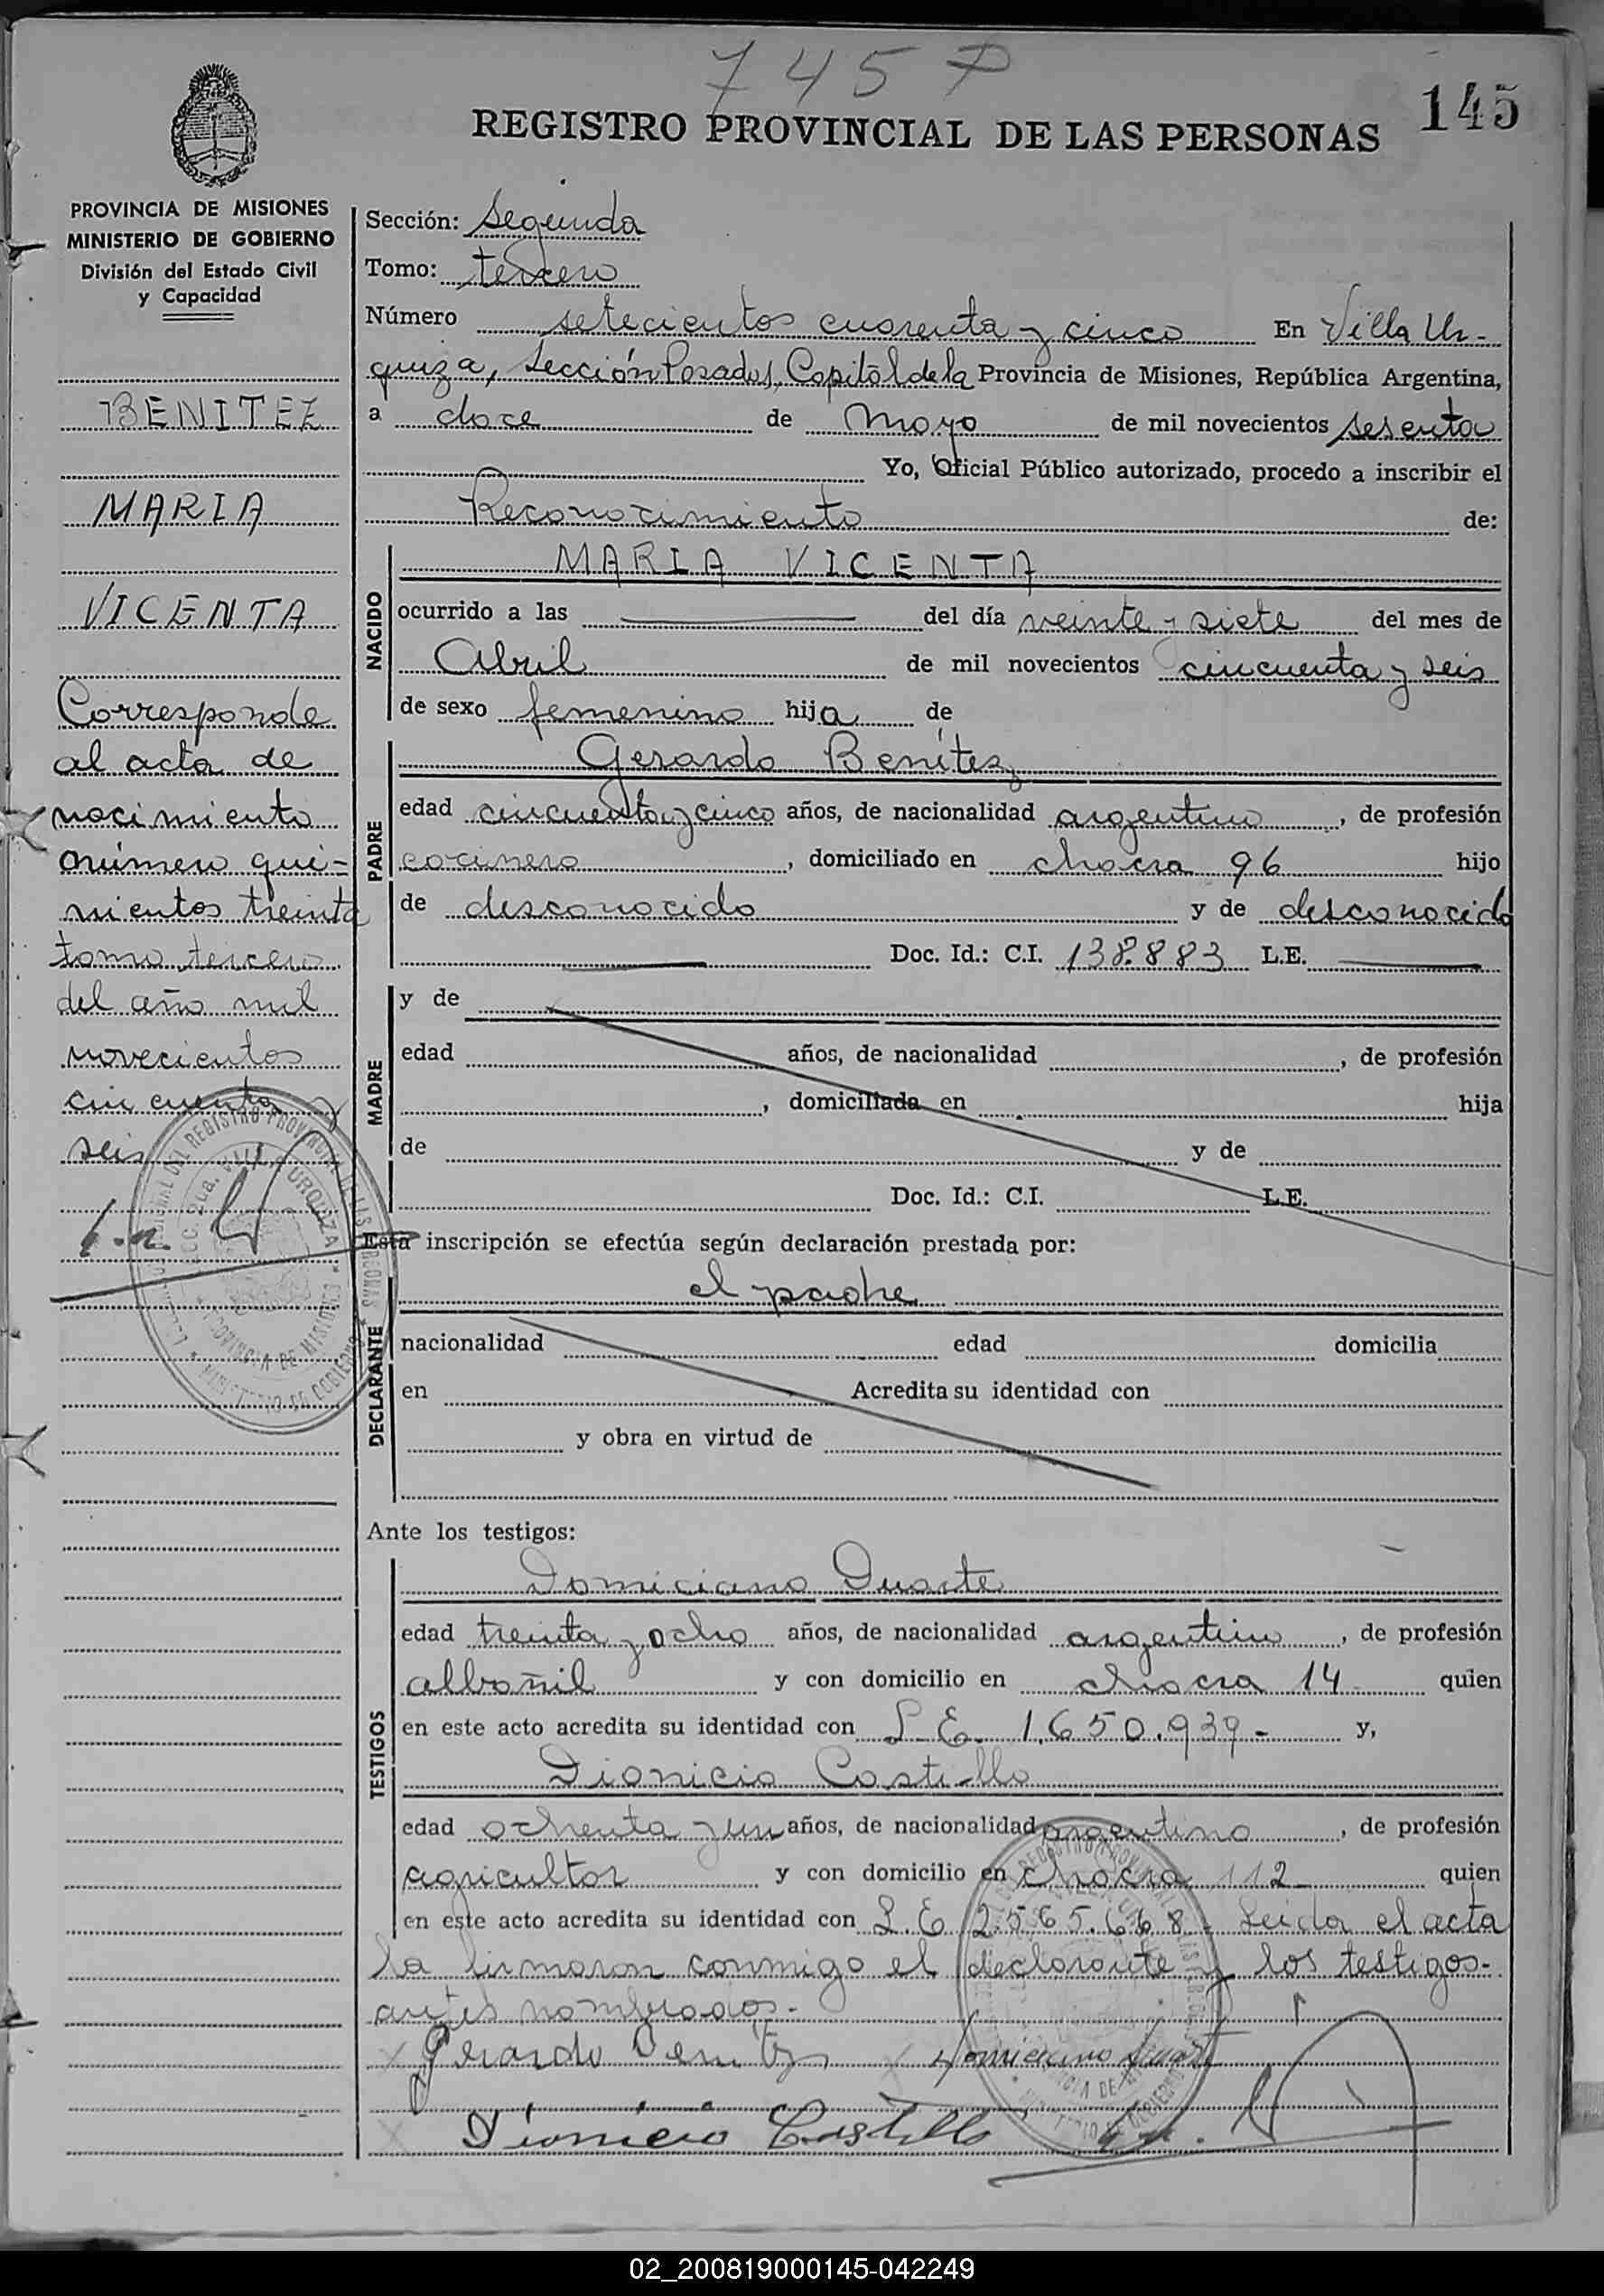 745 P
145
REGISTRO PROVINCIAL DE LAS PERSONAS
PROVINCIA DE MISIONES
MINISTERIO DE GOBIERNO
División del Estado Civil
y Capacidad
BENITEZ
MARIA
VICENTA
Corresponde
al acta de
nacimiento
número qui=
nientos treinta
tomo tercero
del año mil
novecientos
cincuenta y
seis
Sección: Segunda
Tomo: tercero
Número setecientos cuarenta y cinco En Villa Ur-
quiza, Sección Posadas, Capitál de la Provincia de Misiones, República Argentina,
a doce de Mayo de mil novecientos sesenta
Yo, Oficial Público autorizado, procedo a inscribir el
Reconocimiento de:
NACIDO
MARIA VICENTA
ocurrido a las del día veinte y siete del mes de
Abril de mil novecientos cincuenta y seis
de sexo femenino hija de
PADRE
Gerardo Benítez
edad cincuenta y cinco años, de nacionalidad argentino, de profesión
cocinero, domiciliado en chacra 96 hijo
de desconocido y de desconocido
Doc. Id.: C.I. 138.883 L.E.
MADRE
y de
edad años, de nacionalidad , de profesión
, domiciliada en hija
de y de
Doc. Id.: C.I. L.E.
Esta inscripción se efectúa según declaración prestada por:
DECLARANTE
el padre
nacionalidad edad domicilia
en Acredita su identidad con
y obra en virtud de
Ante los testigos:
TESTIGOS
Domiciano Duarte
edad treinta y ocho años, de nacionalidad argentino, de profesión
albañil y con domicilio en chacra 14 quien
en este acto acredita su identidad con L.E. 1.650.939- y,
Dionicio Castillo
edad ochenta y un años, de nacionalidad argentino, de profesión
agricultor y con domicilio en chacra 112 quien
en este acto acredita su identidad con L.E. 2.565.668- Leida el acta
la firmaron conmigo el declarante y los testigos-
antes nombrados.-
Gerardo Benitez Domiciano Duarte
Dionicio Castillo
02_200819000145-042249